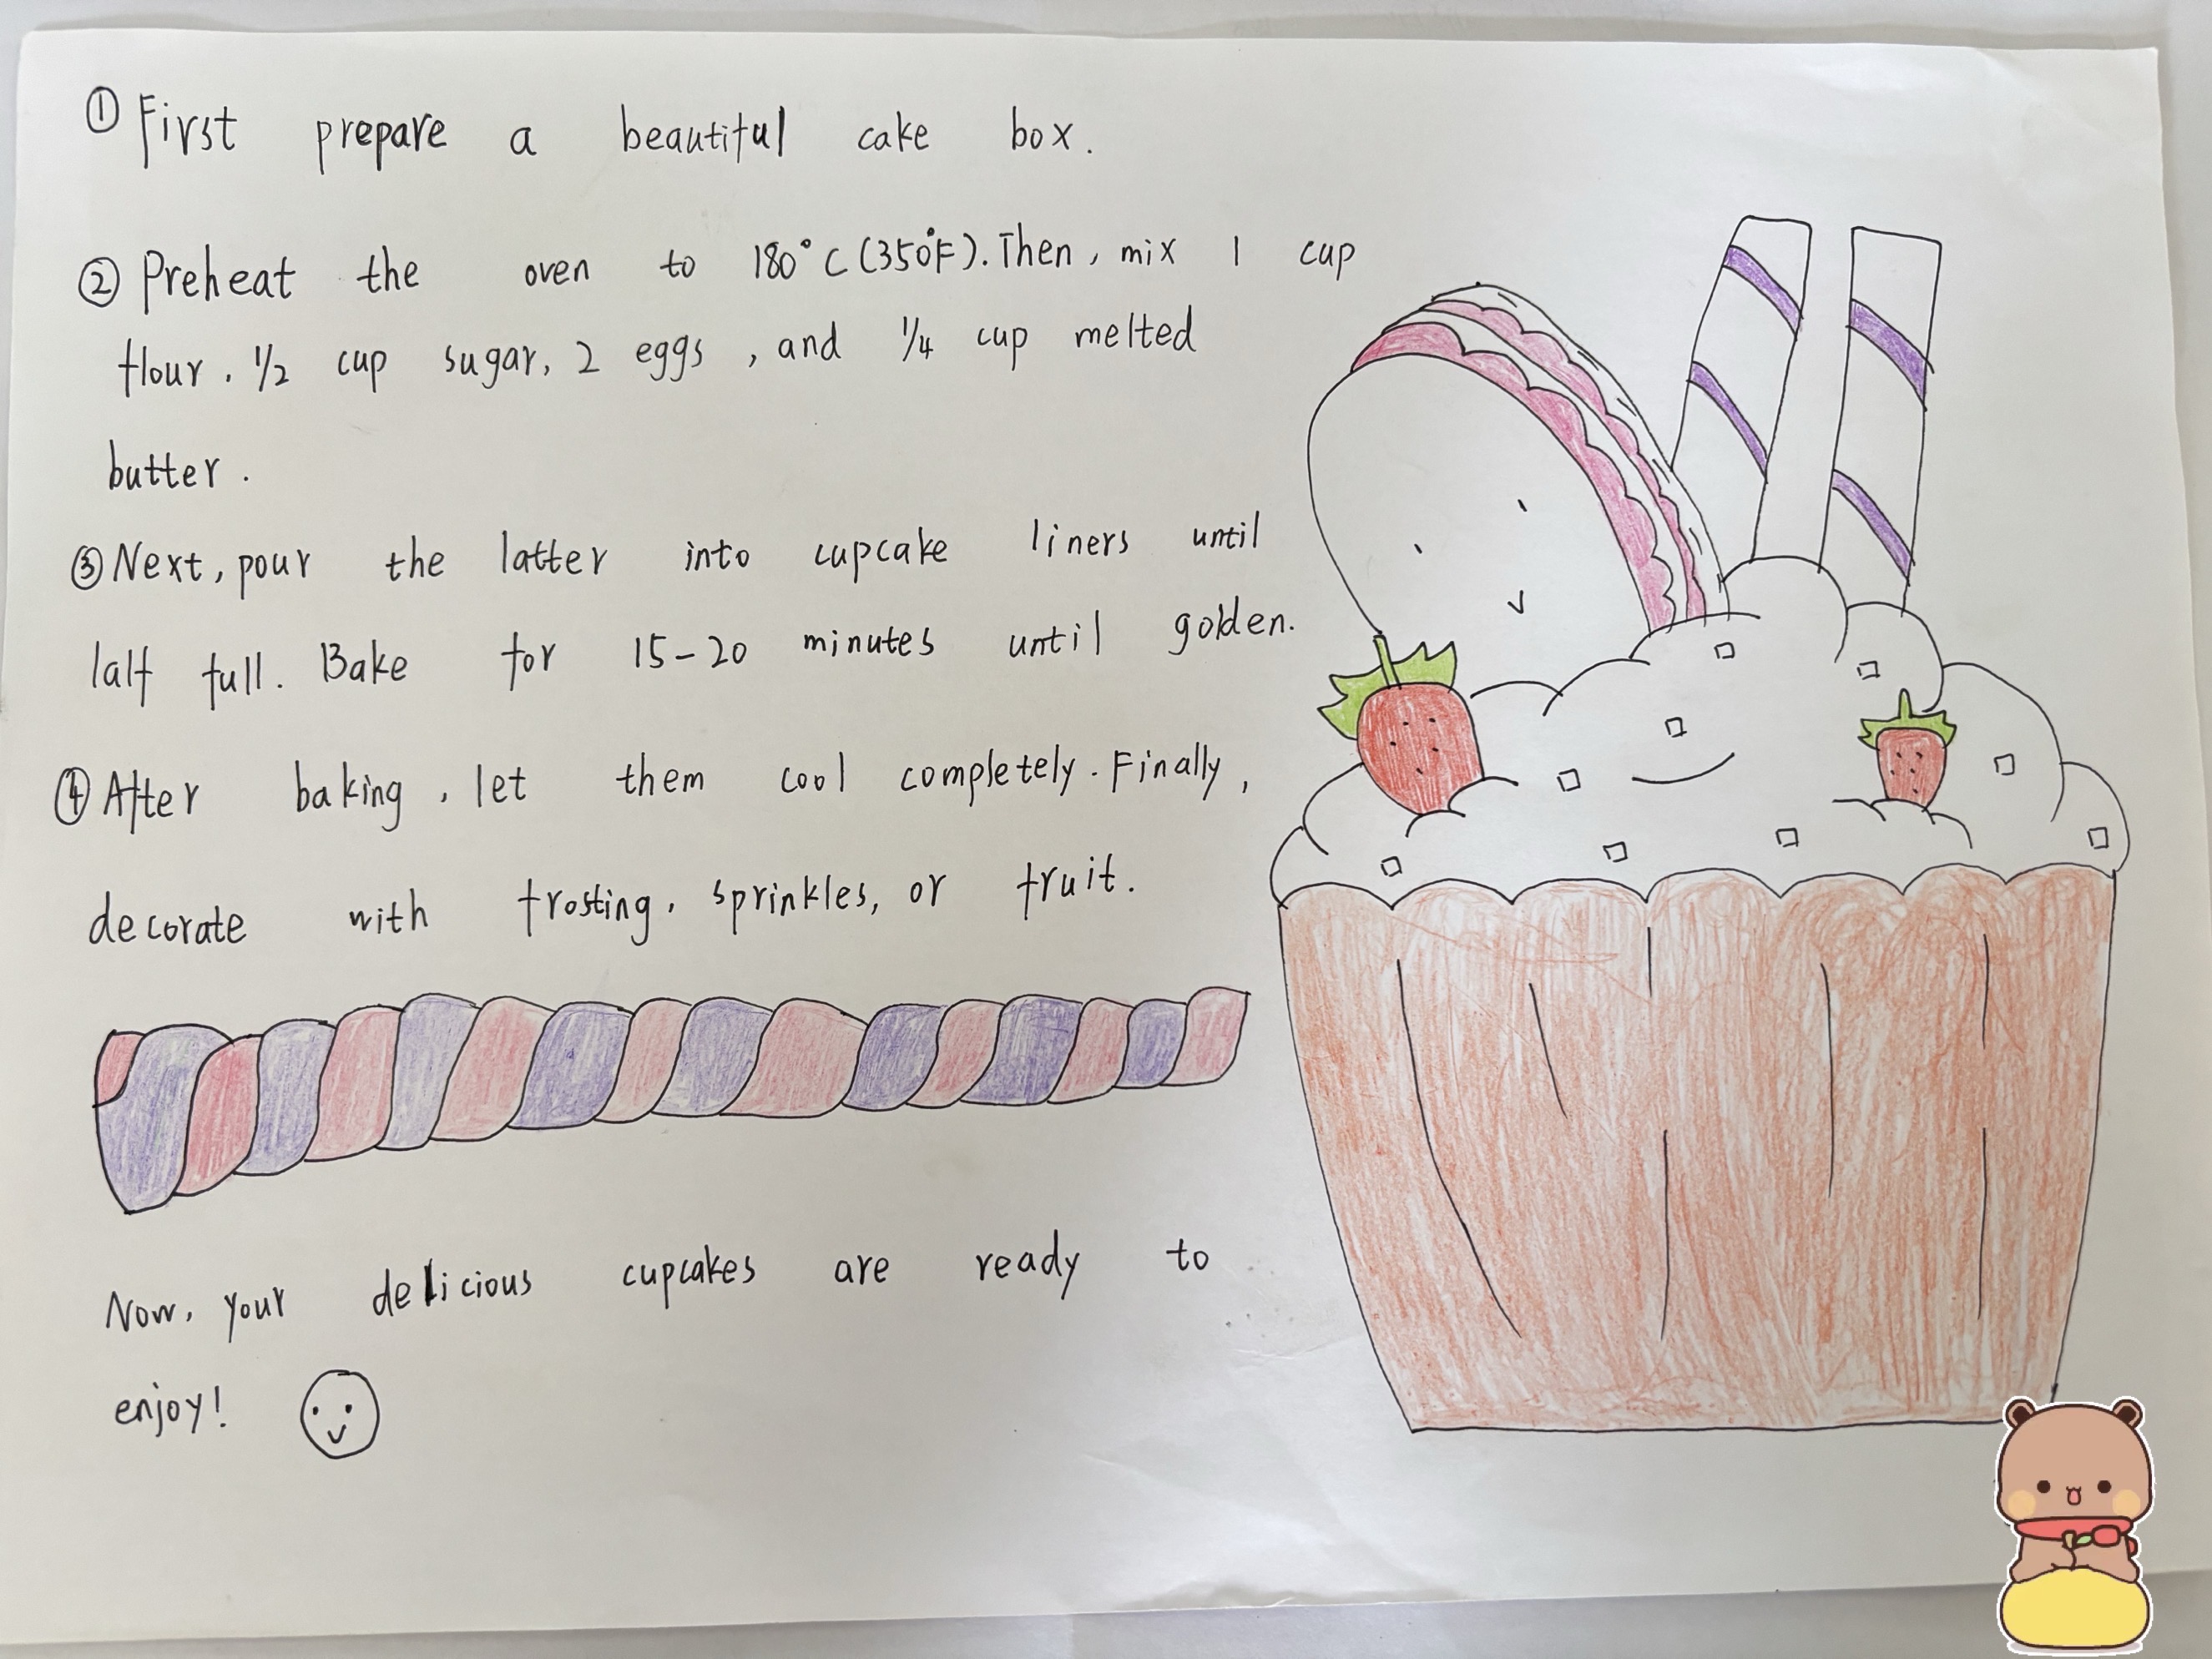 ① First prepare a beautiful cake box.
② Preheat the oven to 180°C (350°F). Then, mix 1 cup
flour, 1/2 cup sugar, 2 eggs, and 1/4 cup melted
butter.
③ Next, pour the latter into cupcake liners until
lalf full. Bake for 15-20 minutes until golden.
④ After baking, let them cool completely. Finally,
decorate with frosting, sprinkles, or fruit.
Now, your delicious cupcakes are ready to
enjoy!